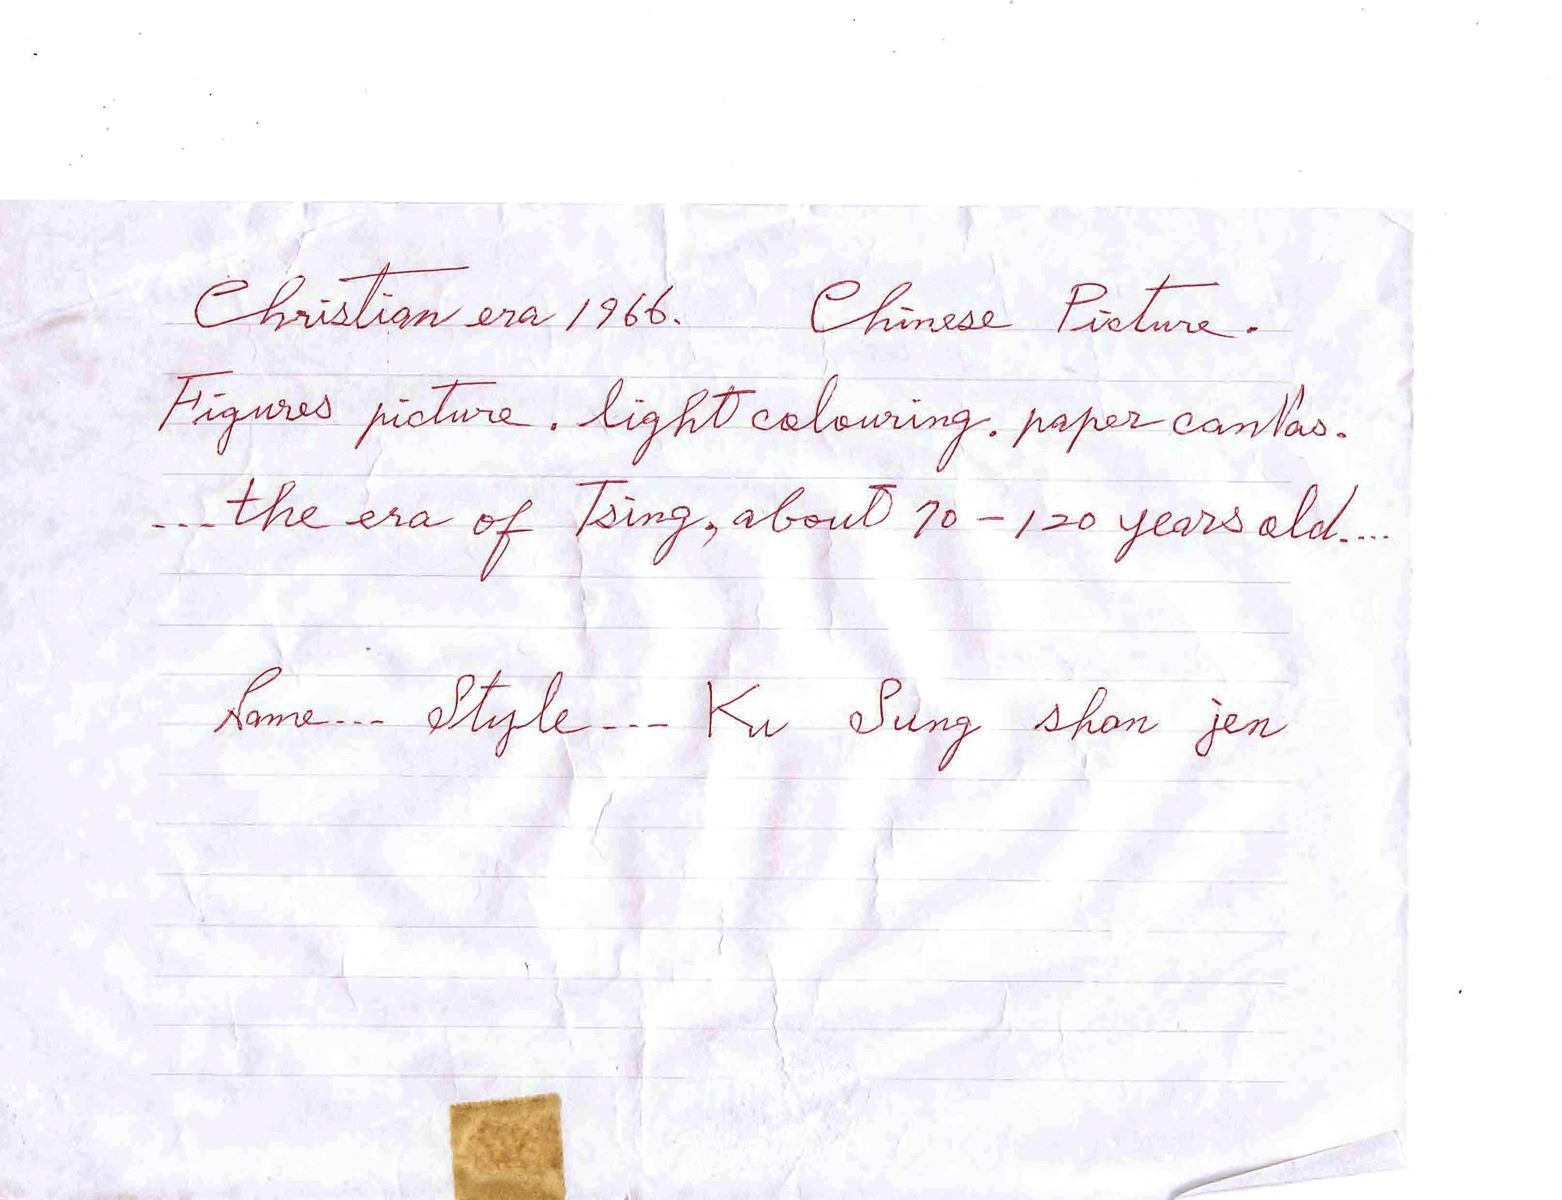 Christian era 1966. Chinese Picture.
Figures picture. light colouring. paper canvas.
...the era of Tsing, about 70-120 years old....
Same... Style... Ku Sung shan jen